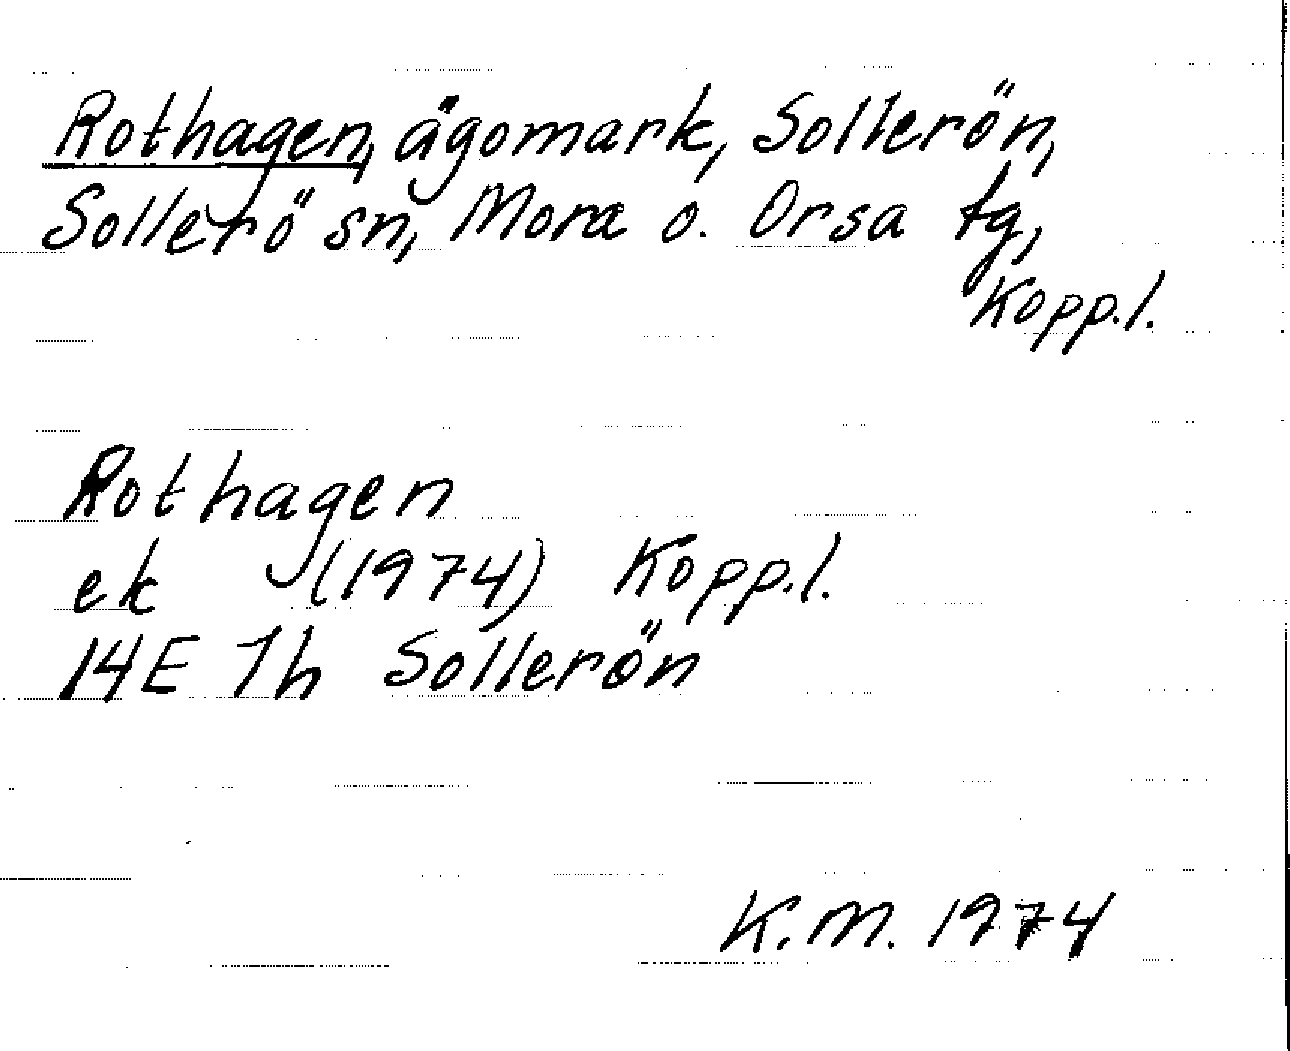 Rothagen, ägomark, Sollerön,
Sollerö sn, Mora o. Orsa tg,
Kopp.l.
Rothagen
ek (1974) Kopp.l.
14E 1h Sollerön
K.M. 1974